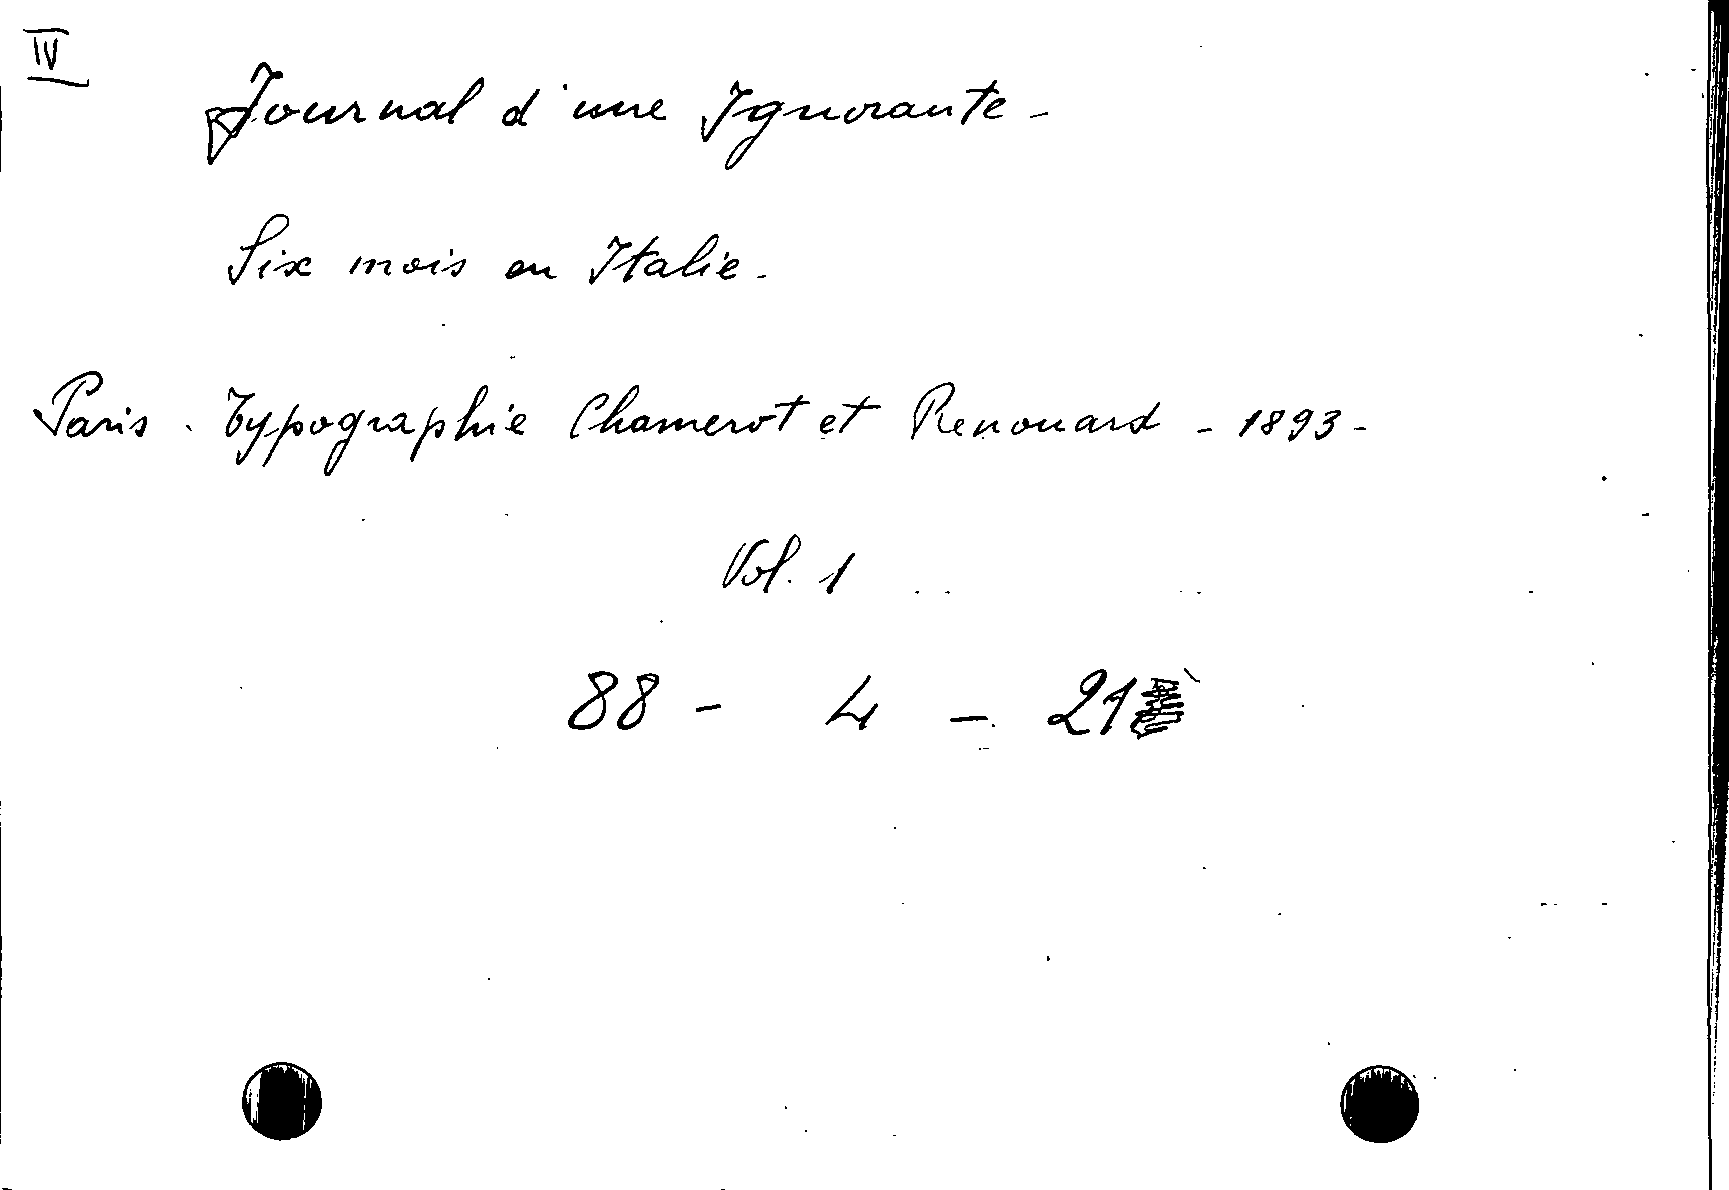 IV
Journal d'une Ignorante -
Six mois en Italie -
Paris . Typographie Chamerot et Renouard - 1893 -
Vol. 1
88 - 4 - 21